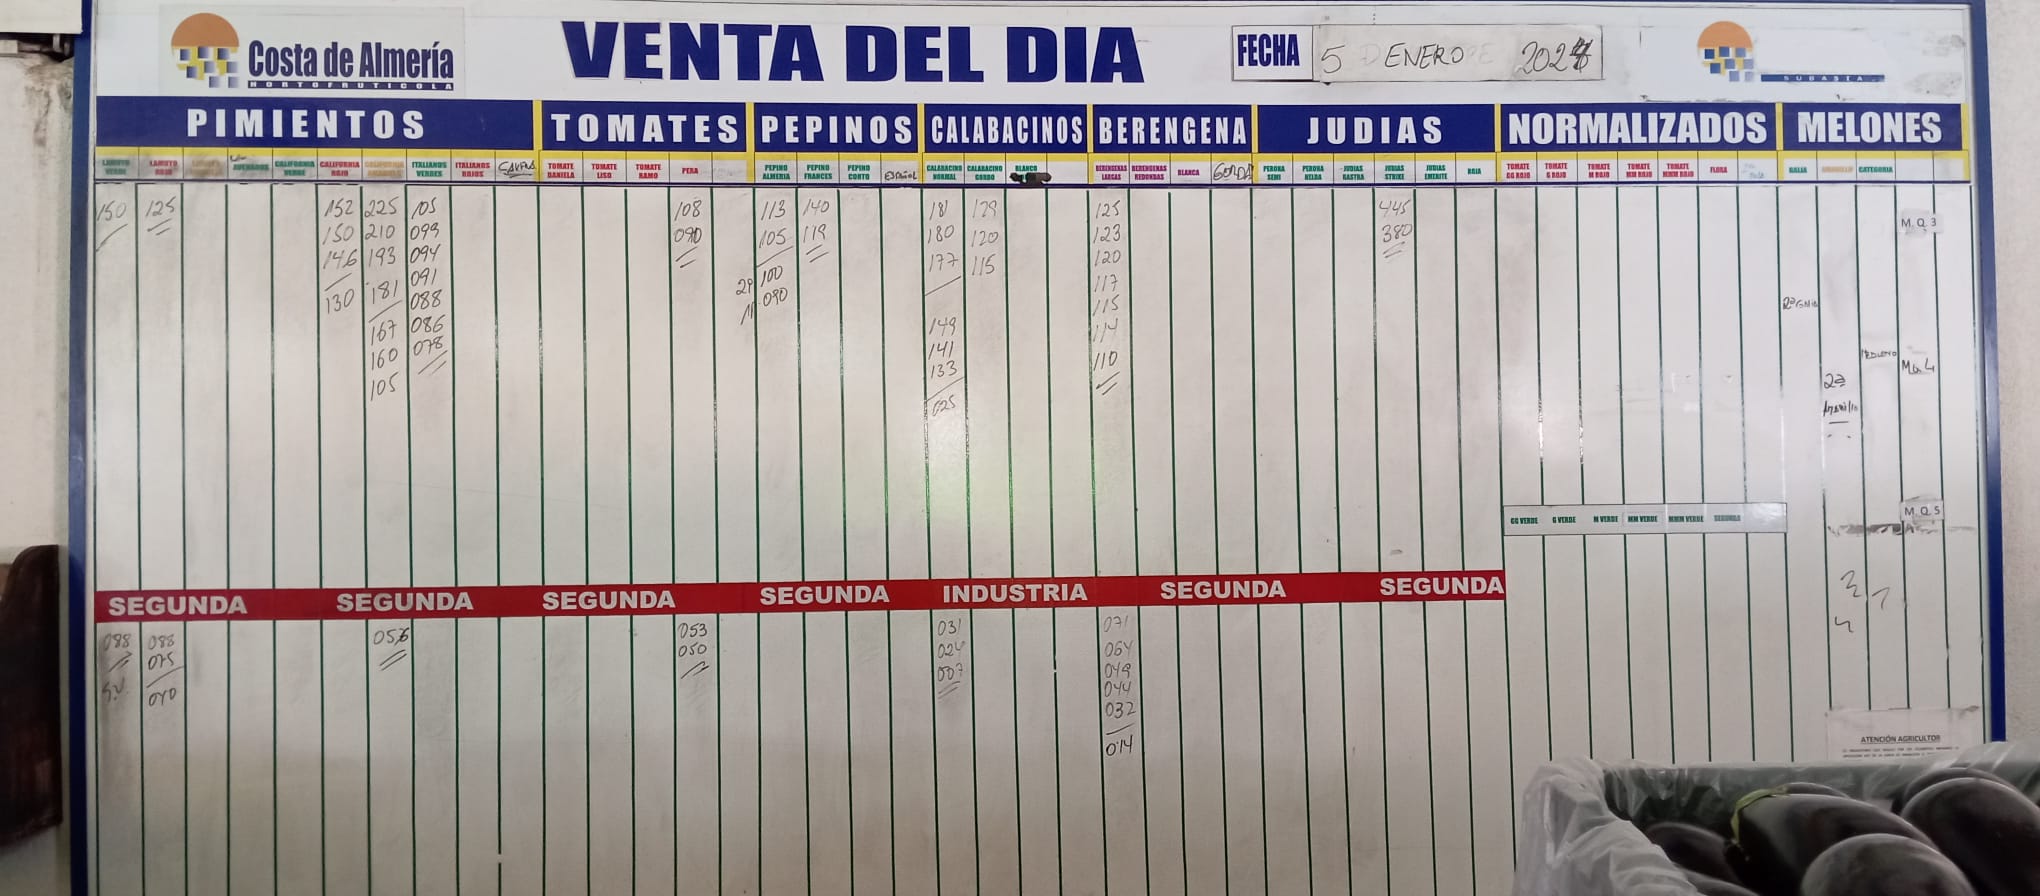 Costa de Almería
HORTOFRUTICOLA
VENTA DEL DIA
FECHA 5 ENERO 2024
SUBASTA
PIMIENTOS TOMATES PEPINOS CALABACINOS BERENGENA JUDIAS NORMALIZADOS MELONES
LAMUYO VERDE
LAMUYO ROJO
CALIFORNIA VERDE
CALIFORNIA ROJO
CALIFORNIA AMARILLO
ITALIANOS VERDES
ITALIANOS ROJOS
TOMATE DANIELA
TOMATE LISO
TOMATE RAMO
PERA
PEPINO ALMERIA
PEPINO FRANCES
PEPINO CORTO
ESPAÑOL
CALABACINO NORMAL
CALABACINO GORDO
BLANCO
BERENGENAS LARGAS
BERENGENAS REDONDAS
BLANCA
GORDA
PERONA SEMI
PERONA HELDA
JUDIAS RASTRA
JUDIAS STRIKE
JUDIAS EMERITE
ROJA
TOMATE GG ROJO
TOMATE G ROJO
TOMATE M ROJO
TOMATE MM ROJO
TOMATE MMM ROJO
FLORA
GALIA
AMARILLO
CATEGORIA
150 125 152 225 105 108 113 140 181 129 125 445
150 210 099 090 105 119 180 120 123 380
146 193 094 177 115 120
130 181 091 100 117
088 090 115
167 086 149 114
160 078 141 110
105 133
025
M.Q.3
M.Q.4
2ª
M.Q.5
GG VERDE G VERDE M VERDE MM VERDE MMM VERDE SEGUNDA
SEGUNDA SEGUNDA SEGUNDA SEGUNDA INDUSTRIA SEGUNDA SEGUNDA
088 088 056 053 031 071
075 050 024 064
040 007 049
044
032
014
ATENCIÓN AGRICULTOR